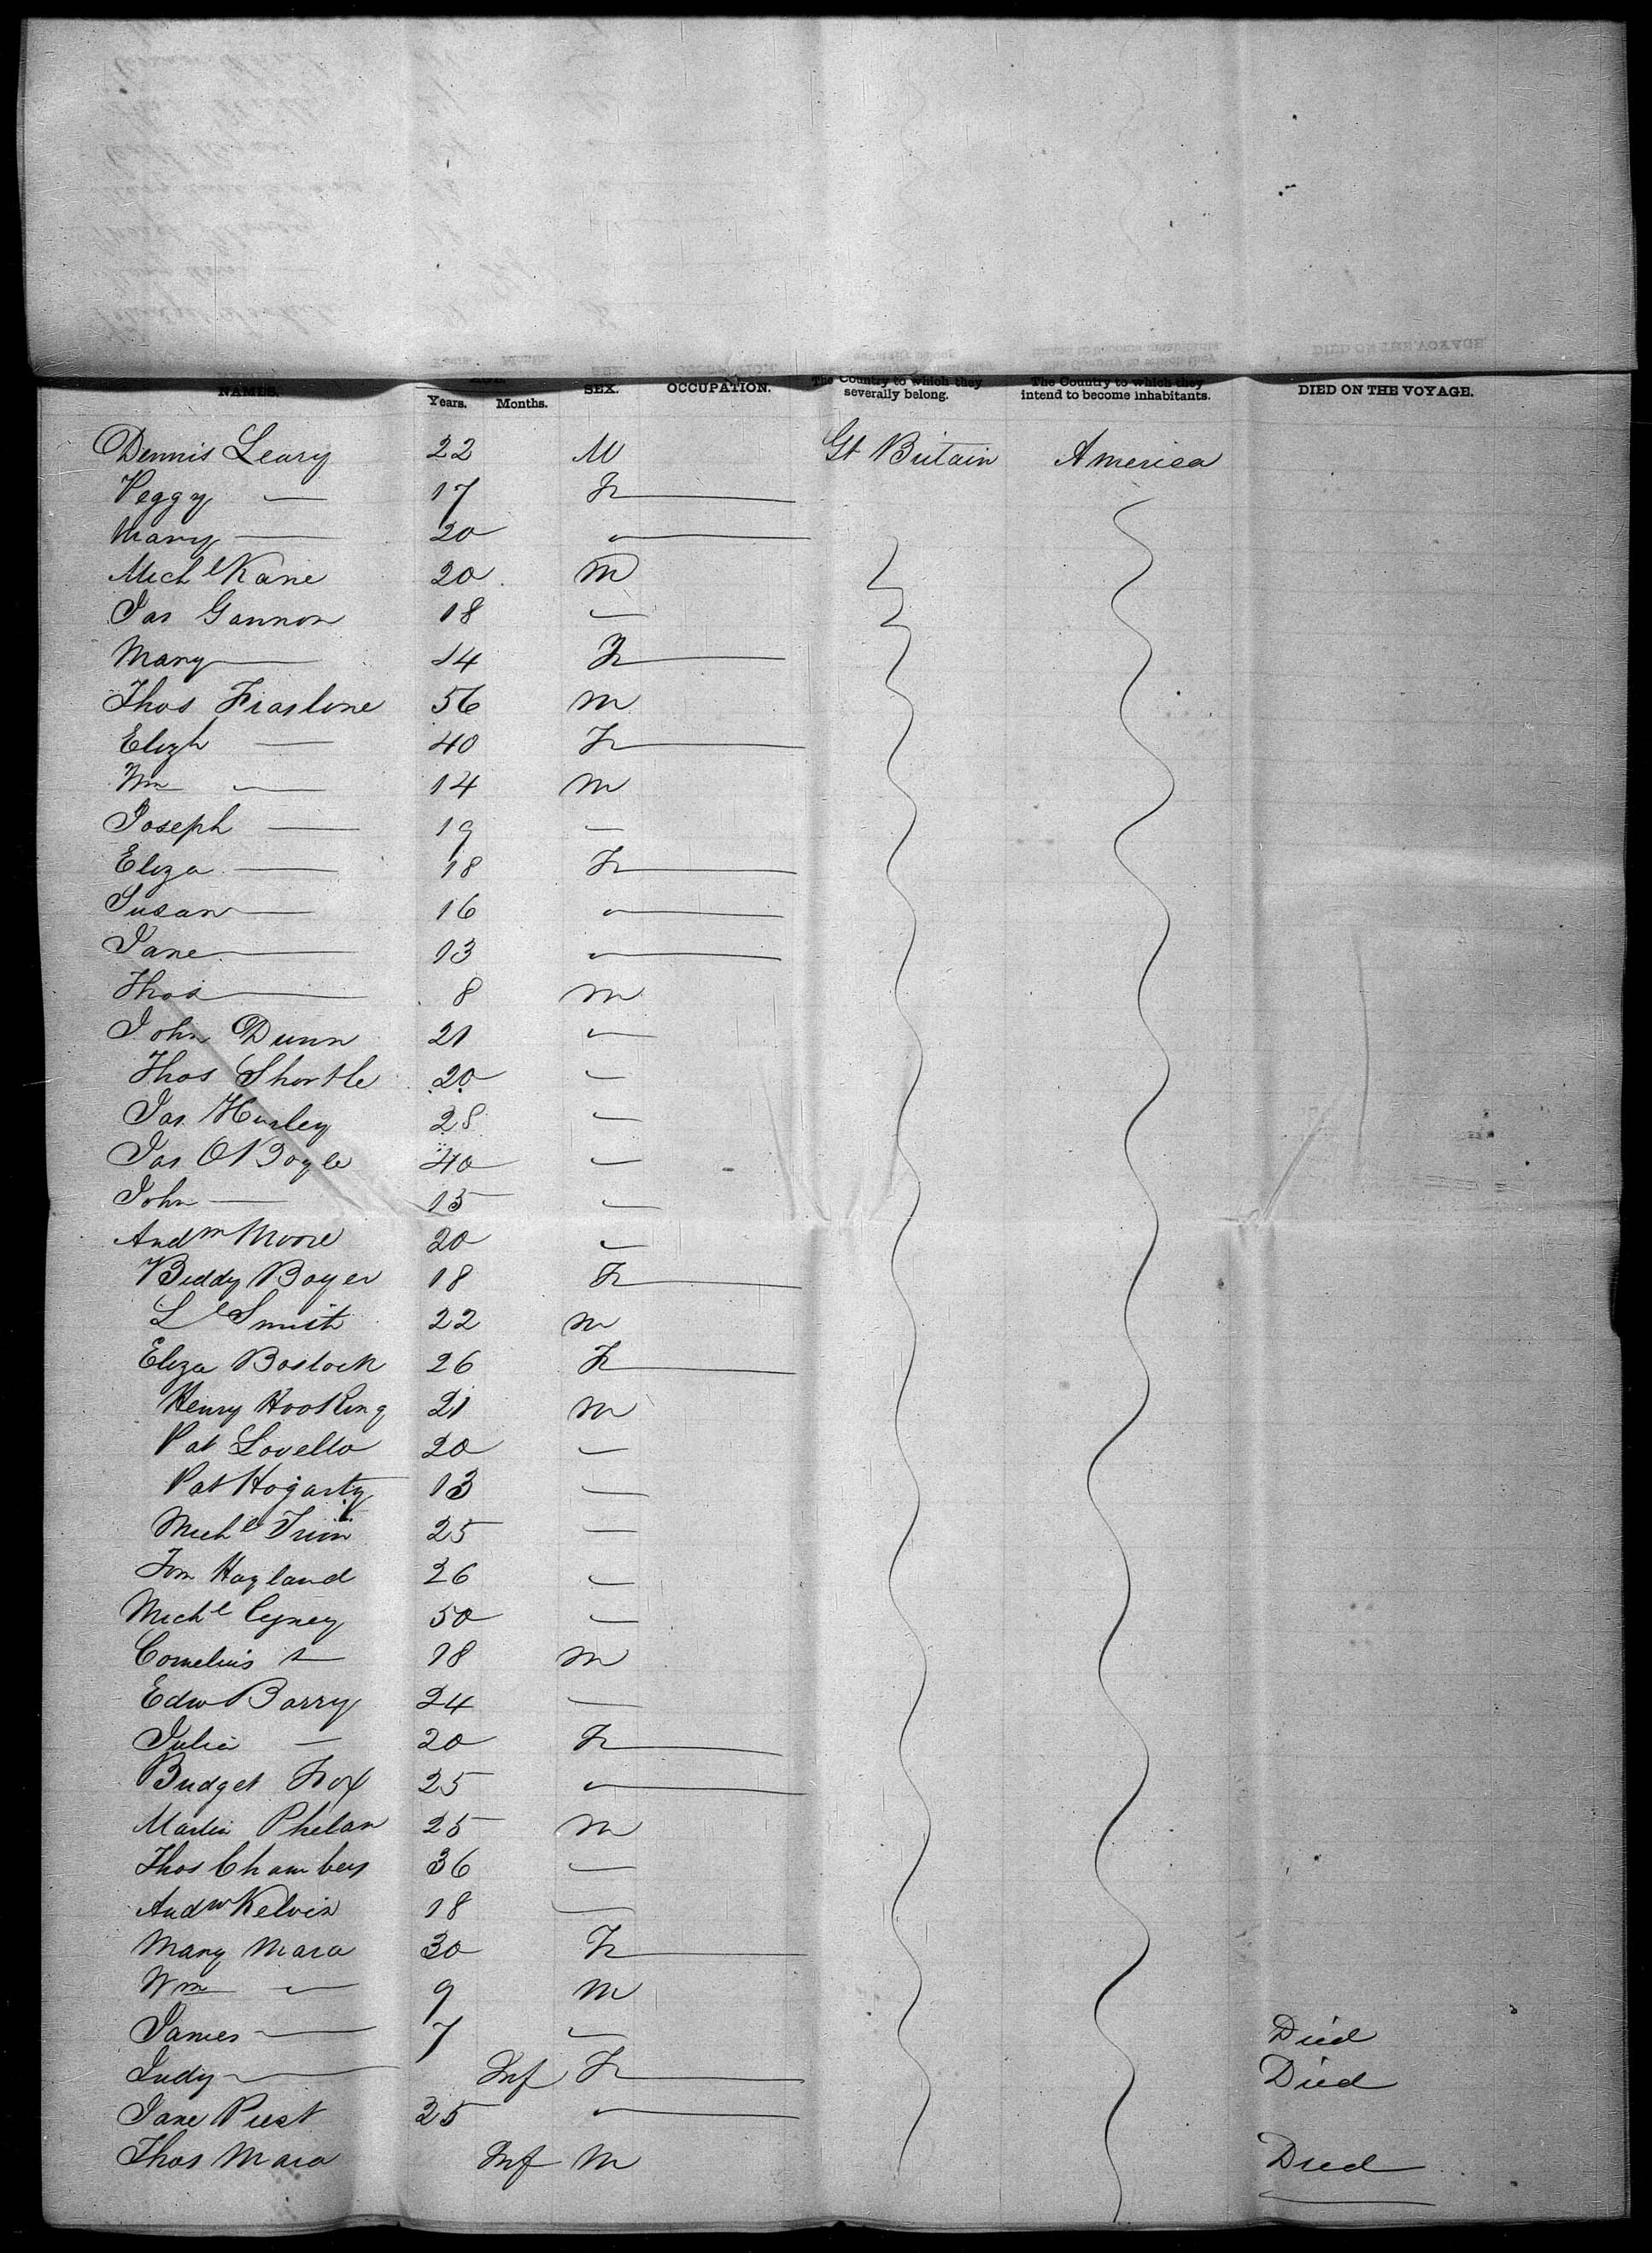 NAMES. AGE. SEX. OCCUPATION. The Country to which they severally belong. The Country to which they intend to become inhabitants. DIED ON THE VOYAGE.
Years. Months.
Dennis Leary 22 M Gt Britain America
Peggy — 17 F
Mary — 20 "
Michl Kane 20 M
Jas Gannon 18 "
Mary — 14 F
Thos Fraslone 56 M
Elizh — 40 F
Wm — 14 M
Joseph — 19 "
Eliza — 18 F
Susan — 16 "
Jane — 13 "
Thos — 8 M
John Dunn 21 "
Thos Shortle 20 "
Jas Hurley 28 "
Jas O'Boyle 40 "
John — 15 "
Andw Moore 20 "
Biddy Boyer 18 F
L Smith 22 M
Eliza Bostock 26 F
Henry Hosking 21 M
Pat Lovello 20 "
Pat Hogarty 13 "
Michl Trim 25 "
Tom Hayland 26 "
Michl 50 "
Cornelius — 18 M
Edw Barry 24 "
Julia — 20 F
Bridget Fox 25 "
Martin Phelan 25 M
Thos Chambers 36 "
Andw Kelvin 18 "
Mary Mara 30 F
Wm — 9 M
James — 7 " Died
Judy — Inf F Died
Jane Priest 25 "
Thos Mara Inf M Died